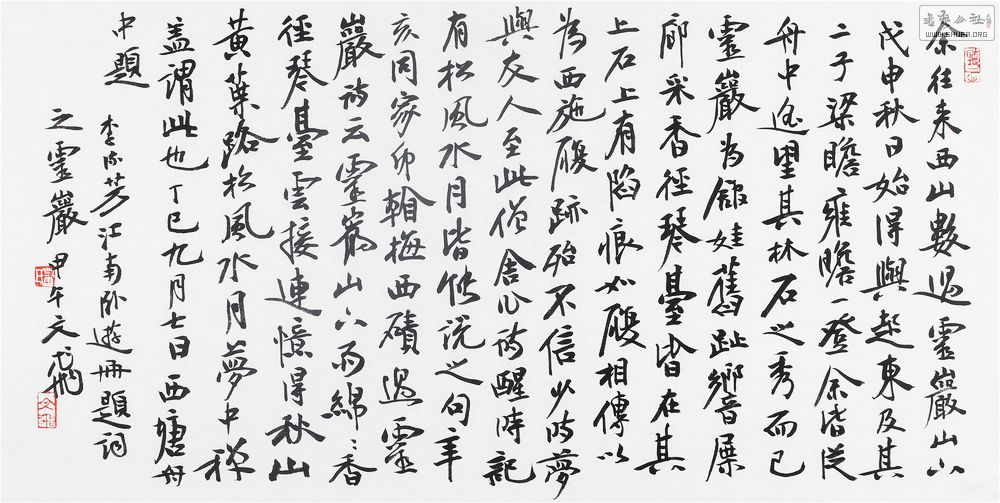 余往来西山數過靈巖山下
戊申秋日始得與起東及其
二子梁瞻雍瞻一登余皆從
舟中遥望其林石之秀而已
靈巖為館娃舊趾響屧
廊采香徑琴臺皆在其
上石上有陷痕如履相傳以
為西施履跡殆不信少時夢
與友人至此僧舍作詩醒時記
有松風水月皆能說之句辛
亥同家卯翰梅西磧過靈
巖詩云靈巖山下雨綿〻香
徑琴臺雲接連憶得秋山
黃葉路松風水月夢中禪
盖謂此也丁巳九月七日西塘舟
中題
李流芳江南卧遊冊題詞
之靈巖甲午文飛
WWW.SHUFA.ORG